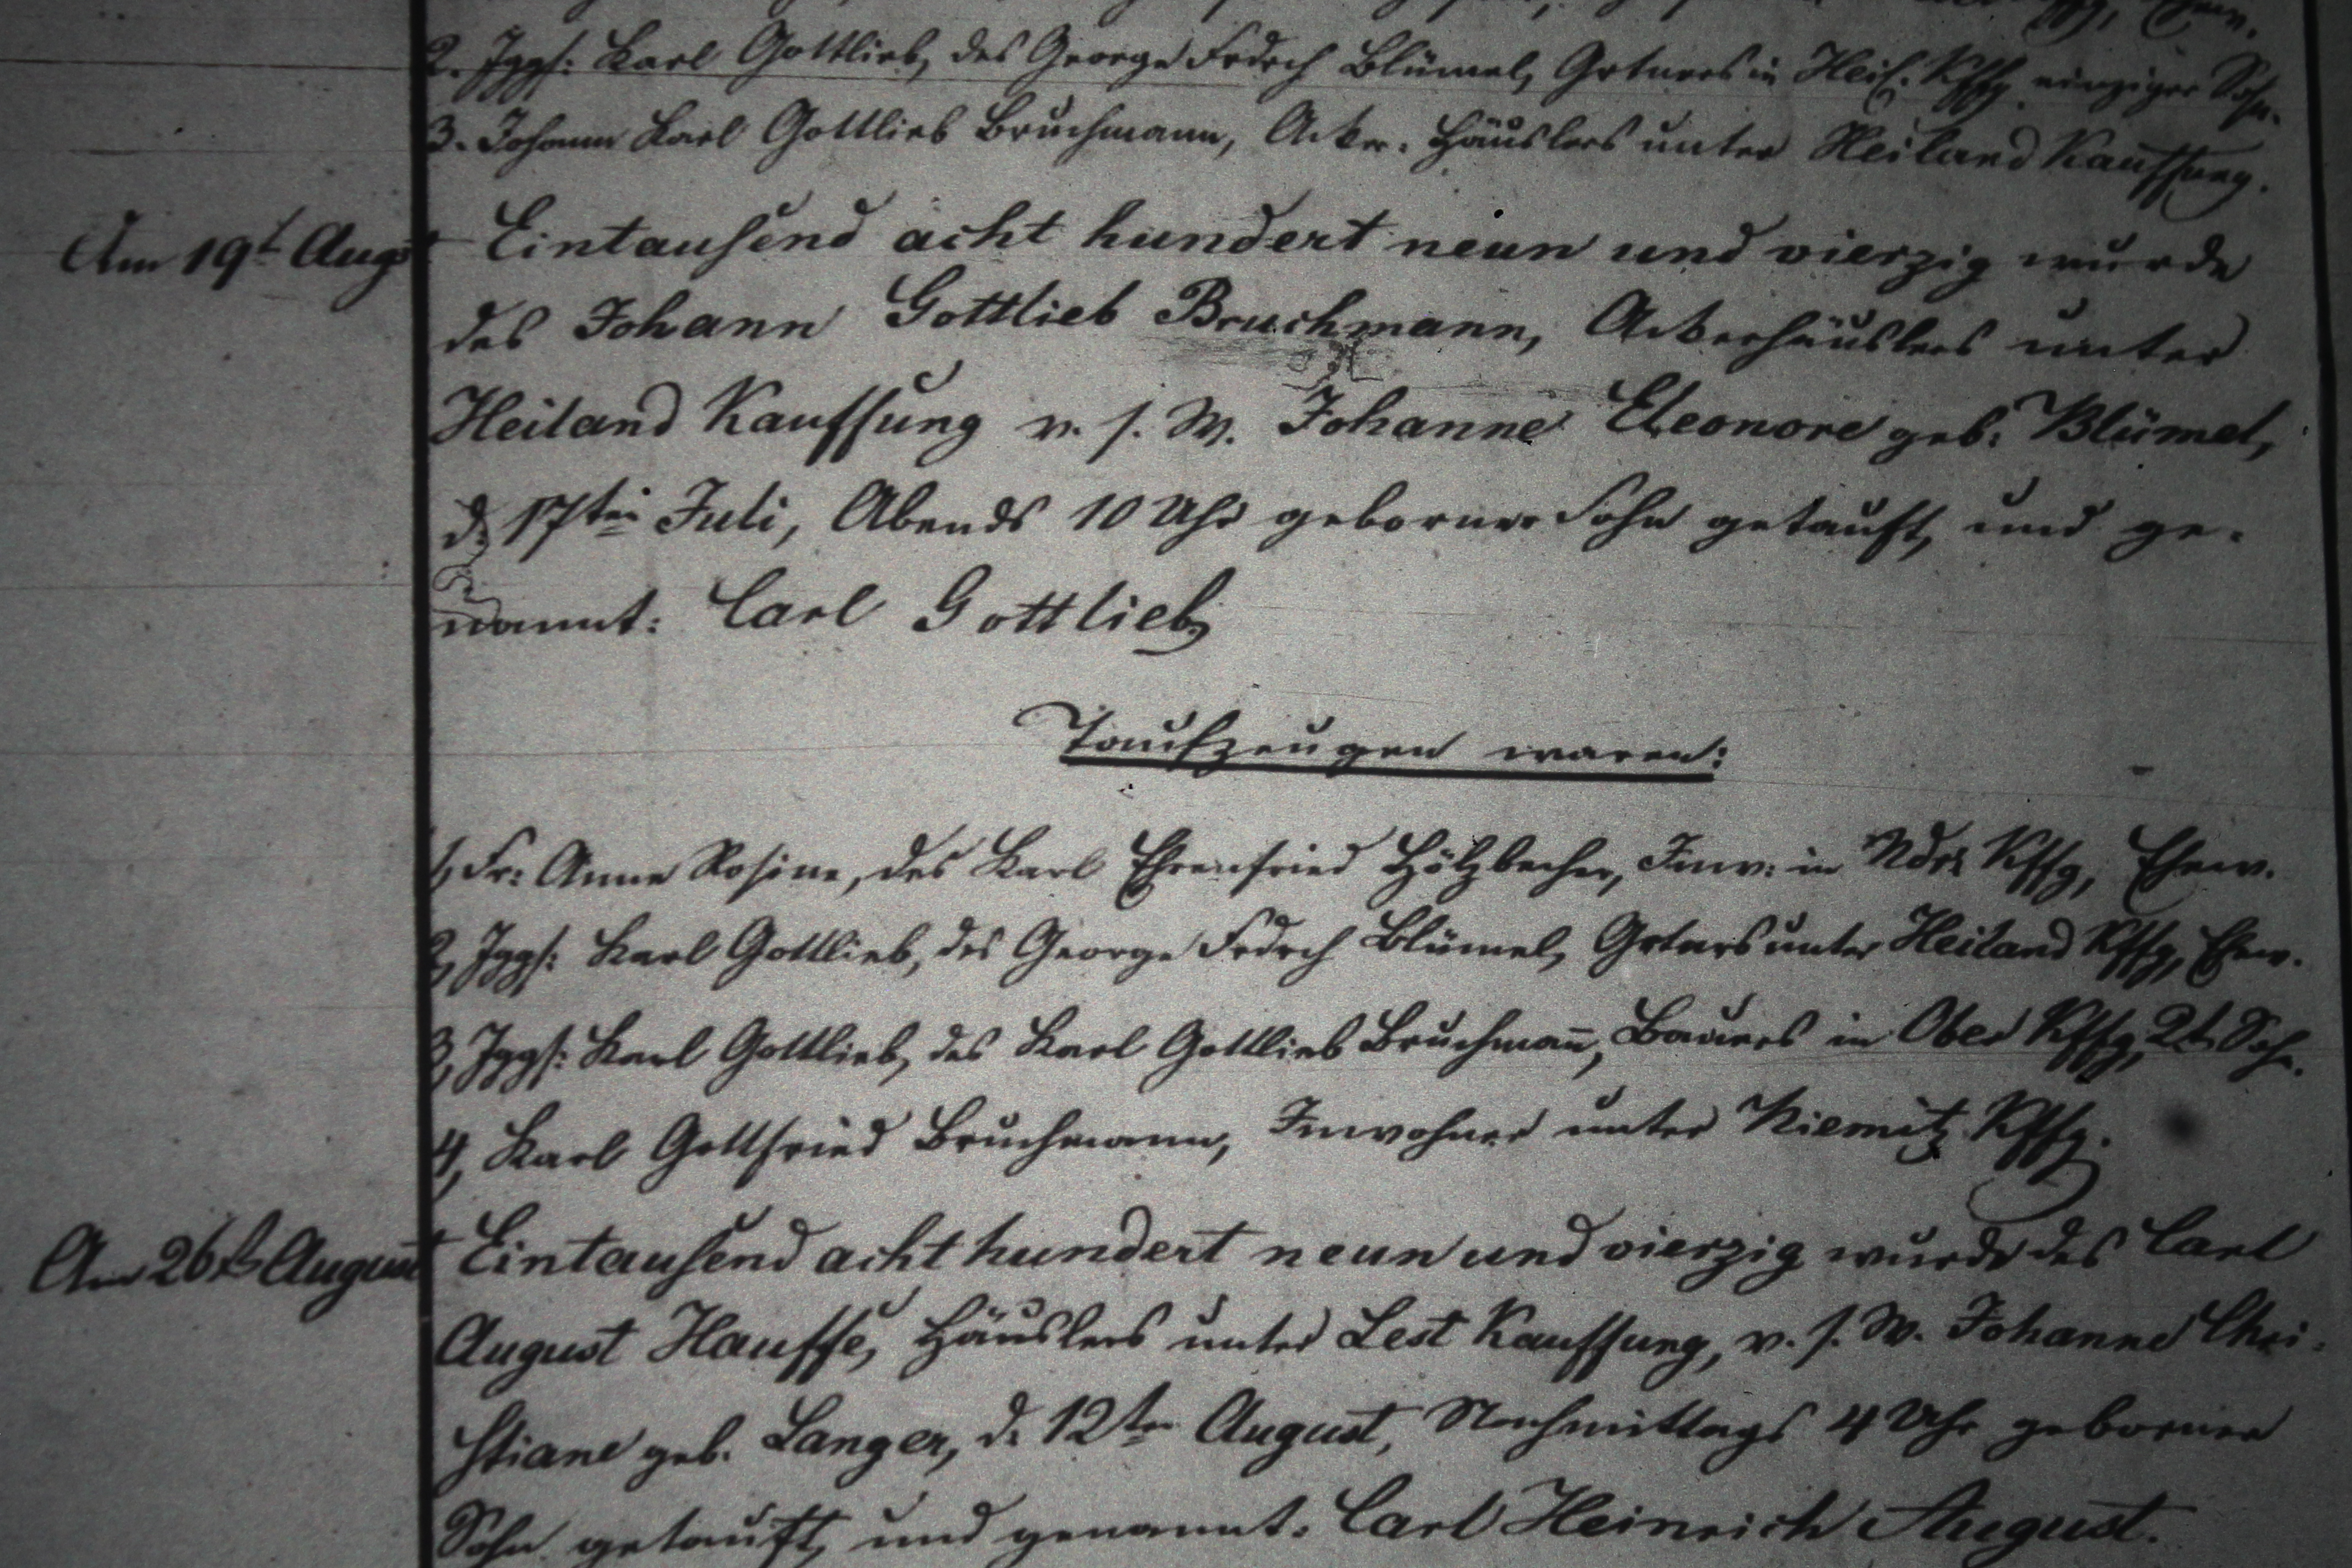 2. Jggs: Karl Gottlieb, des George Frdrch Blümel, Grtners in Heil. Kffg einziger Sohn.
3. Johann Karl Gottlieb Bruchmann, Acker. Häuslers unter Heiland Kauffung.
Am 19t Augst Eintausend acht hundert neun und vierzig wurde
des Johann Gottlieb Bruchmann, Ackerhäuslers unter
Heiland Kauffung v. s. W. Johanne Eleonore geb: Blümel,
d. 17ten Juli, Abends 10 Uhr geborner Sohn getauft, und ge-
nannt: Carl Gottlieb
Taufzeugen waren:
1, Fr: Anne Rosine, des Karl Ehrenfried Hölzbecher, Inw: in Ndr: Kffg, Ehew.
2, Jggs: Karl Gottlieb, des George Frdrch Blümel, Grtnrs unter Heiland Kffg, Ehew.
3, Jggs: Karl Gottlieb, des Karl Gottlieb Bruchman̄, Bauers in Ober Kffg, 2t. Sohn.
4, Karl Gottfried Bruchmann, Inwohner unter Niemitz Kffg.
Am 26t August Eintausend acht hundert neun und vierzig wurde des Carl
August Hauffe, Häuslers unter Lest Kauffung, v. s. W. Johanne Chri-
stiane geb. Langer, d. 12ten August, Nachmittags 4 Uhr geborner
Sohn getauft, und genannt: Carl Heinrich August.